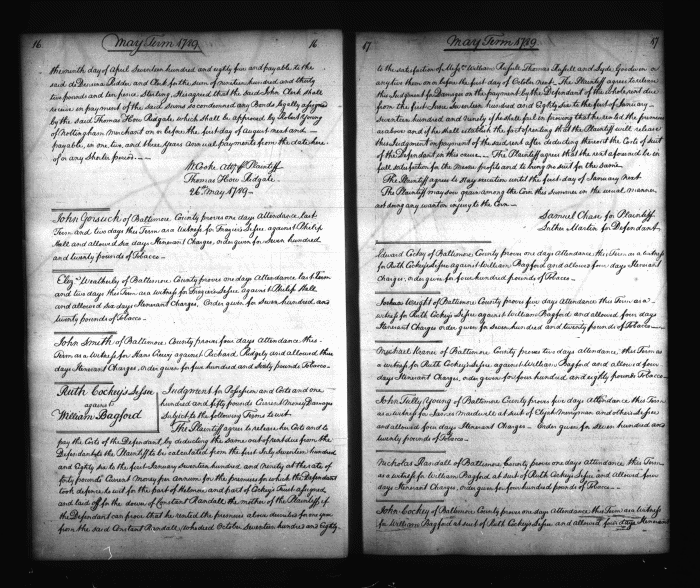 16 May Term 1789 16
the ninth day of April Seventeen hundred and eighty five and payable to the
said de Deverax Radder and Clark for the sum of nineteen hundred and thirty
two pounds and ten pence Sterling. It is agreed that the said John Clark shall
receive in payment of the said Sums so condemned any Bonds legally assigned
by the said Thomas How Ridgate which shall be approved by Robert Young
of Nottingham Merchant on or before the first day of August next and
payable in one, two, and three Years Annual payments from the date hereof
of or any Shorter periods
Wm Cooke Atty Plaintiff
Thomas How Ridgate
26th May 1789
John Gorsuch of Baltimore County proves one days Attendance last
Term and two days this Term as a Witness for Lessee against Philip
Hall and allowed six days Itinerant Charges, order given for Seven hundred
and twenty pounds of Tobacco
Weatherby of Baltimore County proves one days Attendance last Term
and two days this Term as a Witness for Lessee against Philip Hall
and allowed six days Itinerant Charges, Order given for Seven hundred and
twenty pounds of Tobacco
John Smith of Baltimore County proves four days Attendance this
Term as a Witness for Hans Creevy against Richard Ridgely and allowed three
days Itinerant Charges, order given for four hundred and Sixty pounds Tobacco
Ruth Cockey's Lessee
against
William Bagford
Judgment for Possession and Costs and one
hundred and fifty pounds Current Money Damages
Subject to the following Terms to wit
The Plaintiff agrees to release her Costs and to
pay the Costs of the Defendant, by deducting the same out of rent due from the
Defendant to the Plaintiff to be calculated from the first July Seventeen hundred
and Eighty six to the first January Seventeen hundred, and Ninety at the rate of
forty pounds Current Money per Annum for the premises for which the Defendant
took defence to wit for the part of Helmore, and part of Cockey's Trust assigned
and laid off for the dower of Constant Randall the mother of the Plaintiff, if
the Defendant can prove that he rented the premises above demised for one year
from the said Constant Randall, who died October Seventeen hundred and Eighty
17 May Term 1789 17
to the satisfaction of Messrs William Russell Thomas Russell and Lyde Goodwin or
any two them on or before the first day of October next. The Plaintiff agrees to release
this Judgment for Damages on the payment by the Defendant of the whole rent due
from the first June Seventeen hundred and Eighty Six to the first of January
Seventeen hundred and Ninety if he shall fail in proving that he rented the premises
as above and if he shall establish the fact of renting that the Plaintiff will release
this Judgment on payment of the said rent after deducting thereout the Costs of suit
of the Defendant in this cause. The Plaintiff agrees that the rent aforesaid be in
full satisfaction for the mesne profits and to bring no suit for the same
The Plaintiff agrees to stay execution until the first day of January next
The Plaintiff may sow grain among the Corn this Summer in the usual manner
not doing any wanton injury to the Corn
Samuel Chase for Plaintiff.
Luther Martin for Defendant
Edward Cockey of Baltimore County proves one days attendance this Term as a witness
for Ruth Cockey's Lessee against William Bagford and allowed four days Itinerant
Charges, order given for four hundred pounds of Tobacco
Joshua Wright of Baltimore County proves five days attendance this Term as a
witness for Ruth Cockey Lessee against William Bagford and allowed four days
Itinerant Charges order given for seven hundred and twenty pounds of Tobacco
Michael Kraner of Baltimore County proves two days attendance, this Term as
a witness for Ruth Cockey's Lessee against William Bagford and allowed four
days Itinerant Charges, order given for four hundred, and eighty pounds Tobacco
John Tully Young of Baltimore County proves five days Attendance this Term
as a Witness for at suit of Elijah Merryman and others Lessee
and allowed four days Itinerant Charges Order given for Seven hundred and
twenty pounds of Tobacco
Nicholas Randall of Baltimore County proves one days Attendance this Term
as a witness for William Bagford at suit of Ruth Cockeys Lessee and allowed four
days Itinerant Charges, order given for four hundred pounds of Tobacco.
John Cockey of Baltimore County proves one days Attendance this Term as a Witness
for William Bagford at suit of Ruth Cockeys Lessee and allowed four days Itinerant